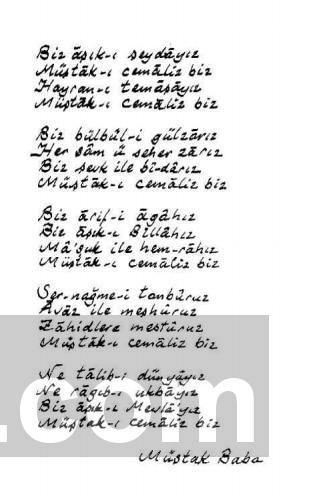 Biz âşık-ı şeydâyız
Müştâk-ı cemâliz biz
Hayran-ı temâşâyız
Müştâk-ı cemâliz biz
Biz bülbül-i gülzârız
Her şâm ü seher zârız
Biz şevk ile bî-dârız
Müştâk-ı cemâliz biz
Biz ârif-i âgâhız
Biz âşık-ı Billâhız
Mâ'şuk ile hem-râhız
Müştâk-ı cemâliz biz
Ser-nağme-i tanbûruz
Avâz ile meşhûruz
Zâhidlere mestûruz
Müştâk-ı cemâliz biz
Ne tâlib-i dünyâyız
Ne râgıb-ı ukbâyız
Biz âşık-ı Mevlâ'yız
Müştak-ı cemâliz biz
Müştak Baba
.com